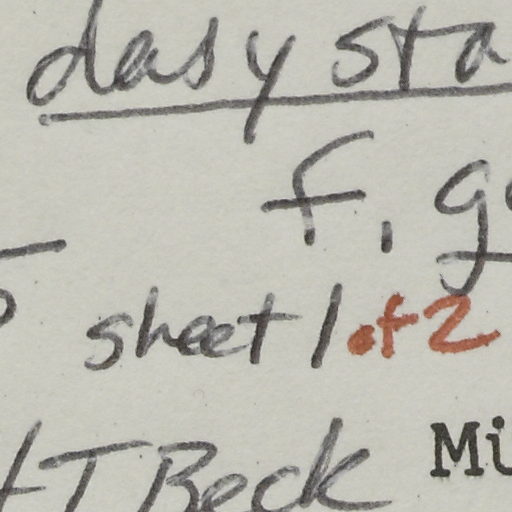 dasysta
f. g
sheet 1 of 2
T Beck Mi